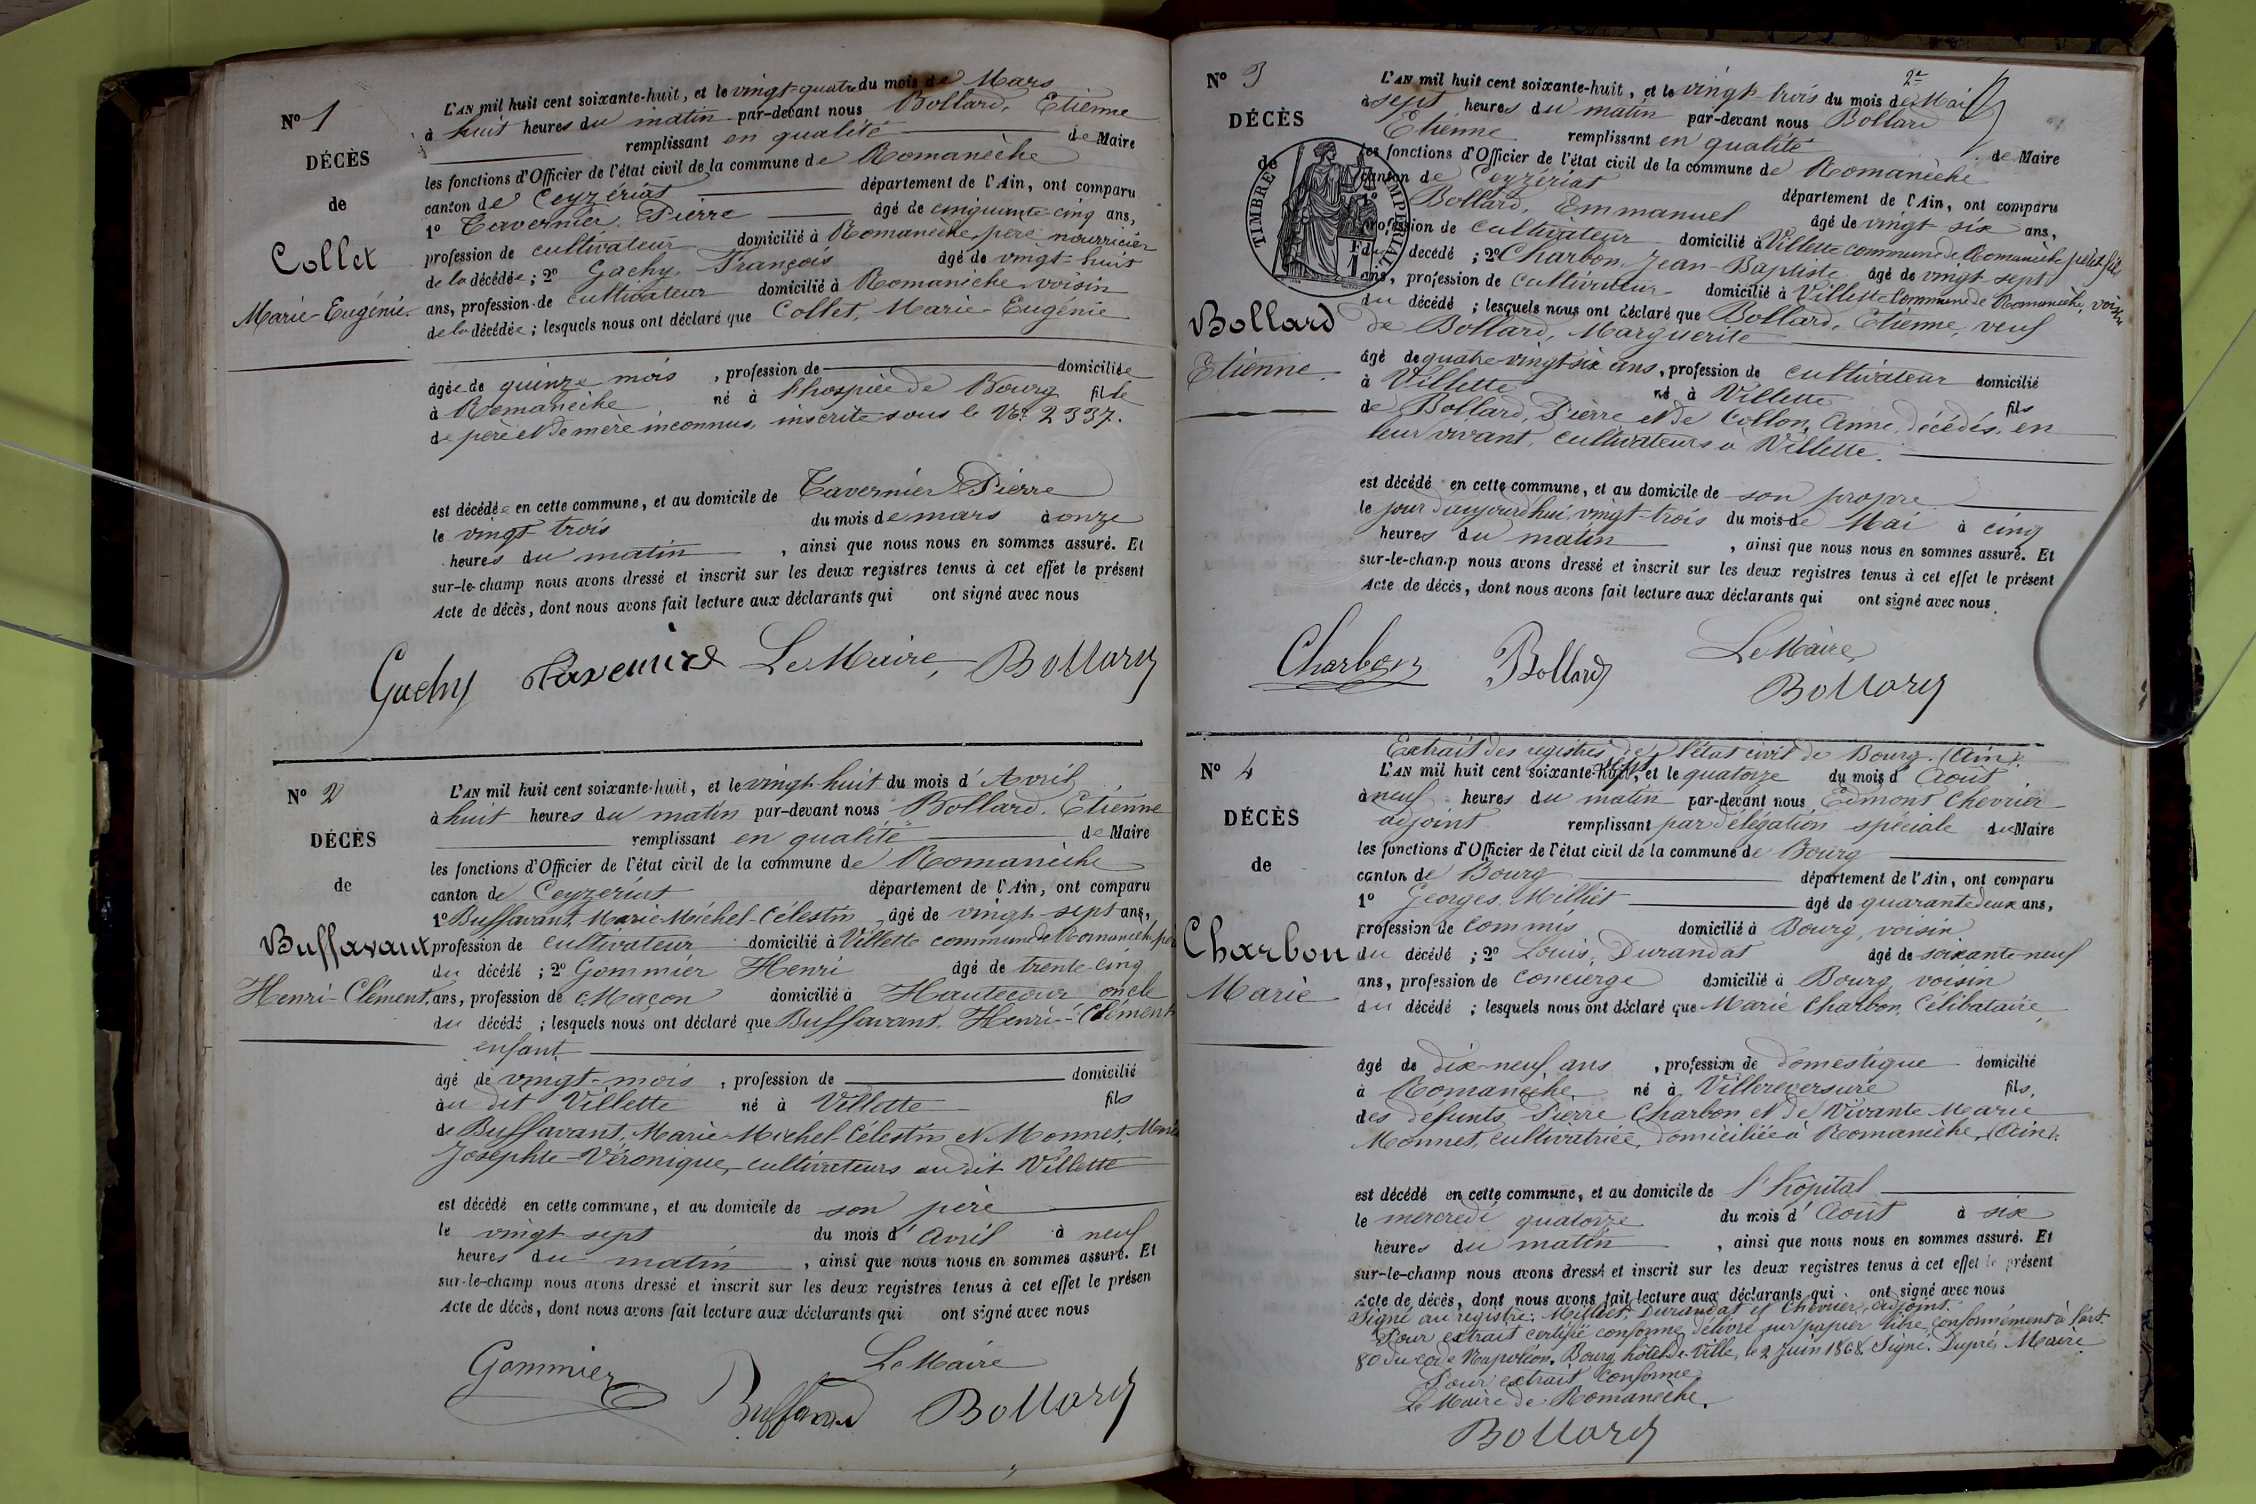 N° 1
DÉCÈS
de
Collet
Marie-Eugénie
L'AN mil huit cent soixante-huit, et le vingt-quatre du mois de Mars
à huit heures du matin par-devant nous Bollard, Etienne
remplissant en qualité de Maire
les fonctions d'Officier de l'état civil de la commune de Romanèche
canton de Ceyzériat département de l'Ain, ont comparu
1° Tavernier, Pierre âgé de cinquante-cinq ans,
profession de cultivateur domicilié à Romanèche, père nourricier
de la décédée ; 2° Gachy, François âgé de vingt-huit
ans, profession de cultivateur domicilié à Romanèche, voisin
de la décédée ; lesquels nous ont déclaré que Collet, Marie-Eugénie
âgée de quinze mois, profession de domiciliée
à Romanèche né à l'hospice de Bourg fille
de père et de mère inconnus, inscrite sous le No. 2337.
est décédée en cette commune, et au domicile de Tavernier Pierre
le vingt trois du mois de mars à onze
heures du matin, ainsi que nous nous en sommes assuré. Et
sur-le-champ nous avons dressé et inscrit sur les deux registres tenus à cet effet le présent
Acte de décès, dont nous avons fait lecture aux déclarants qui ont signé avec nous
Gachy Tavernier Le Maire, Bollard
N° 2
DÉCÈS
de
Buffavant
Henri-Clément,
L'AN mil huit cent soixante-huit, et le vingt-huit du mois d'Avril
à huit heures du matin par-devant nous Bollard, Etienne
remplissant en qualité de Maire
les fonctions d'Officier de l'état civil de la commune de Romanèche
canton de Ceyzeriat département de l'Ain, ont comparu
1° Buffavant, Marie-Michel-Célestin âgé de vingt-sept ans,
profession de cultivateur domicilié à Villette commune de Romanèche, père
du décédé ; 2° Gommier Henri âgé de trente-cinq
ans, profession de Maçon domicilié à Hautecour oncle
du décédé ; lesquels nous ont déclaré que Buffavant, Henri-Clément
enfant
âgé de vingt-mois, profession de domicilié
au dit Villette né à Villette fils
de Buffavant, Marie-Michel-Célestin et Monnet, Marie
Josephte-Véronique, cultivateurs au dit Villette
est décédé en cette commune, et au domicile de son père
le vingt sept du mois d'Avril à neuf
heures du matin, ainsi que nous nous en sommes assuré. Et
sur-le-champ nous avons dressé et inscrit sur les deux registres tenus à cet effet le présen
Acte de décès, dont nous avons fait lecture aux déclarants qui ont signé avec nous
Le Maire
Gommier Buffavand Bollard
N° 3
DÉCÈS
de
TIMBRE IMPÉRIAL
Bollard
Etienne.
2e
L'AN mil huit cent soixante-huit, et le vingt-trois du mois de Mai
à sept heures du matin par-devant nous Bollard
Etienne remplissant en qualité de Maire
les fonctions d'Officier de l'état civil de la commune de Romanèche
canton de Ceyzériat département de l'Ain, ont comparu
1° Bollard, Emmanuel âgé de vingt six ans,
profession de cultivateur domicilié à Villette commune de Romanèche petit fils
du décédé ; 2° Charbon, Jean-Baptiste âgé de vingt-sept
ans, profession de cultivateur domicilié à Villette Commune de Romanèche, voisin
du décédé ; lesquels nous ont déclaré que Bollard, Etienne, veuf
de Bollard, Marguerite
âgé de quatre-vingt-six ans, profession de cultivateur domicilié
à Villette né à Villette fils
de Bollard, Pierre et de Collon, Anne, décédés, en
leur vivant, cultivateurs à Villette.
est décédé en cette commune, et au domicile de son propre
le jour d'aujourd'hui, vingt-trois du mois de Mai à cinq
heures du matin, ainsi que nous nous en sommes assuré. Et
sur-le-champ nous avons dressé et inscrit sur les deux registres tenus à cet effet le présent
Acte de décès, dont nous avons fait lecture aux déclarants qui ont signé avec nous.
Charbon Bollard Le Maire,
Bollard
N° 4
DÉCÈS
de
Charbon
Marie
Extrait des registres de l'état civil de Bourg (Ain).
L'AN mil huit cent soixante-huit sept, et le quatorze du mois d'Août
à neuf heures du matin par-devant nous Edmont Chevrier
adjoint remplissant par délégation spéciale du Maire
les fonctions d'Officier de l'état civil de la commune de Bourg
canton de Bourg département de l'Ain, ont comparu
1° Georges, Milliet âgé de quarante deux ans,
profession de commis domicilié à Bourg, voisin
du décédé ; 2° Louis, Durandat âgé de soixante-neuf
ans, profession de concierge domicilié à Bourg, voisin
du décédé ; lesquels nous ont déclaré que Marie Charbon, Célibataire,
âgé de dix-neuf ans, profession de domestique domicilié
à Romanèche né à Villereversure fils,
des défunts Pierre Charbon et de Vivante Marie
Monnet, cultivatrice, domiciliée à Romanèche, (Ain).
est décédé en cette commune, et au domicile de l'hôpital
le mercredi quatorze du mois d'Août à six
heures du matin, ainsi que nous nous en sommes assuré. Et
sur-le-champ nous avons dressé et inscrit sur les deux registres tenus à cet effet le présent
Acte de décès, dont nous avons fait lecture aux déclarants qui ont signé avec nous
Signé au registre: Milliet, Durandat et Chevrier, adjoint.
Pour extrait certifié conforme, délivré sur papier libre, conformément à l'art.
80 du code Napoléon. Bourg, hôtel de Ville, le 2 Juin 1868. Signé: Dupré, Maire
Pour extrait conforme
Le Maire de Romanèche.
Bollard